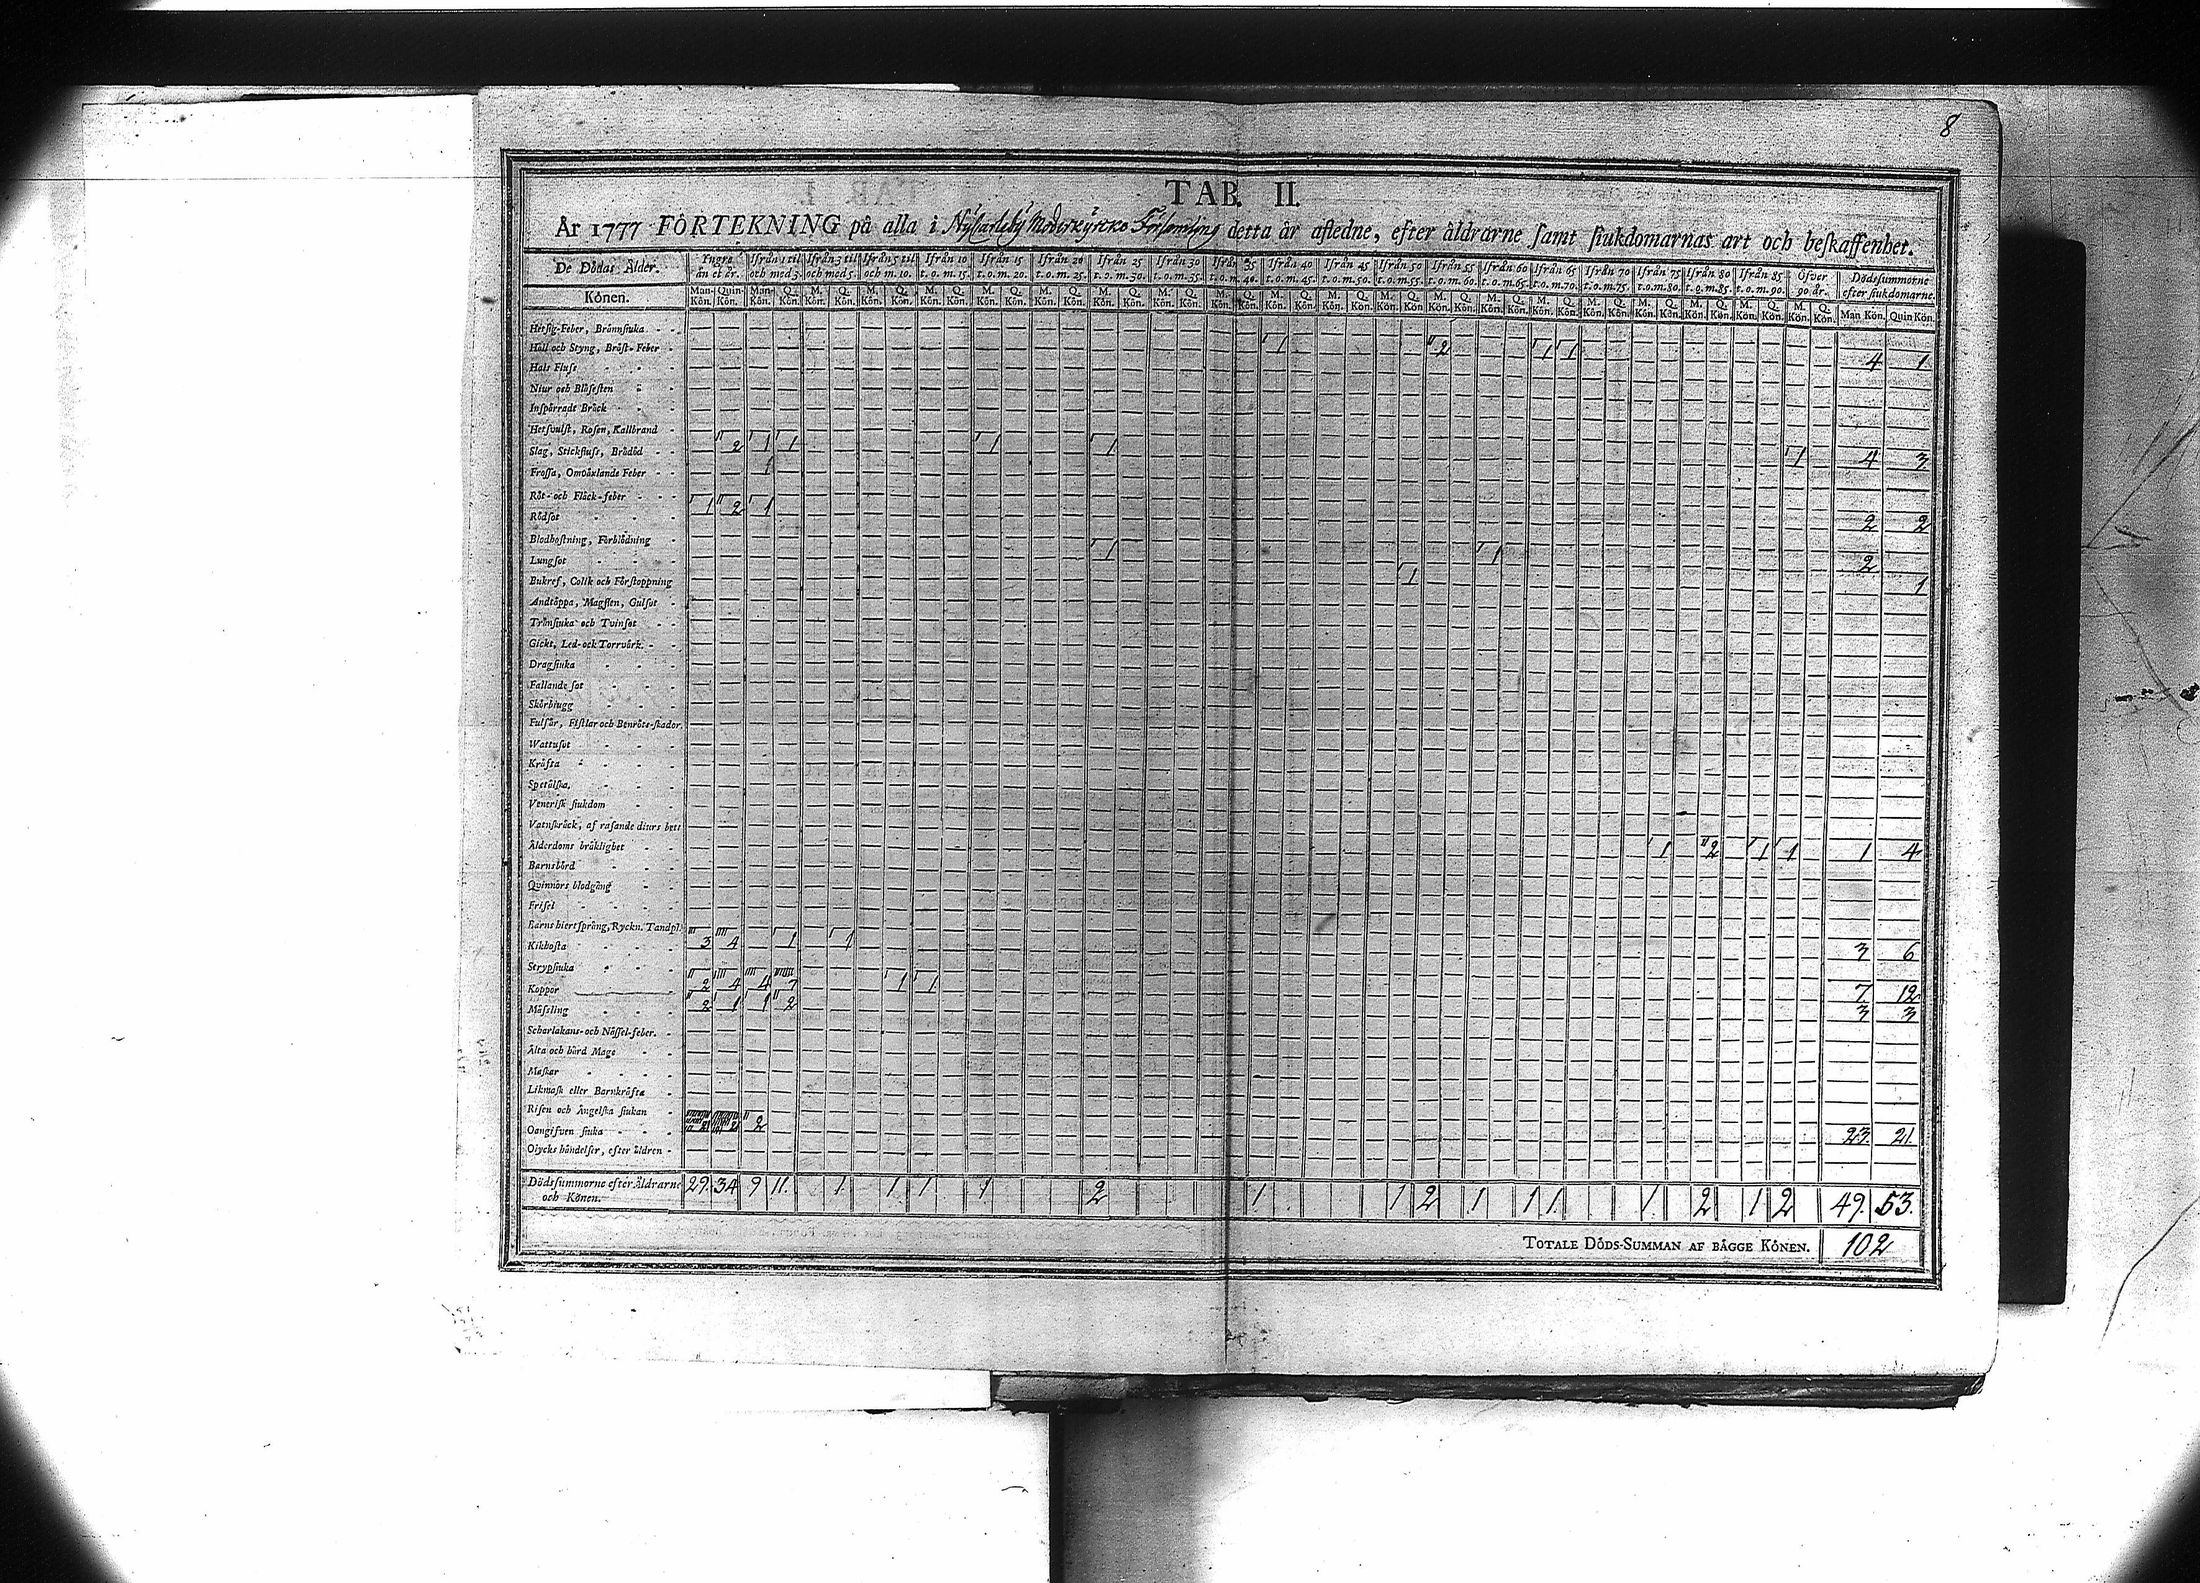 8
TAB. II.
År 1777 FÖRTEKNING på alla i Nÿcarlebÿ Moderkÿrcko Församling detta år aflednе, efter åldrarne samt siukdomarnas art och beskaffenhet.
De Dödas Ålder. Yngre än et år. Ifrån 1 til och med 3. Ifrån 3 til och med 5. Ifrån 5 til och m. 10. Ifrån 10 t. o. m. 15. Ifrån 15 t. o. m. 20. Ifrån 20 t. o. m. 25. Ifrån 25 t. o. m. 30. Ifrån 30 t. o. m. 35. Ifrån 35 t. o. m. 40. Ifrån 40 t. o. m. 45. Ifrån 45 t. o. m. 50. Ifrån 50 t. o. m. 55. Ifrån 55 t. o. m. 60. Ifrån 60 t. o. m. 65. Ifrån 65 t. o. m. 70. Ifrån 70 t. o. m. 75. Ifrån 75 t. o. m. 80. Ifrån 80 t. o. m. 85. Ifrån 85 t. o. m. 90. Öfver 90 år. Dödssummorne efter siukdomarne.
Könen. Man-Kön. Quin-Kön. Man-Kön. Q. Kön. M. Kön. Q. Kön. M. Kön. Q. Kön. M. Kön. Q. Kön. M. Kön. Q. Kön. M. Kön. Q. Kön. M. Kön. Q. Kön. M. Kön. Q. Kön. M. Kön. Q. Kön. M. Kön. Q. Kön. M. Kön. Q. Kön. M. Kön. Q. Kön. M. Kön. Q. Kön. M. Kön. Q. Kön. M. Kön. Q. Kön. M. Kön. Q. Kön. M. Kön. Q. Kön. M. Kön. Q. Kön. M. Kön. Q. Kön. M. Kön. Q. Kön. Man Kön. Quin Kön.
Hetsig-Feber, Brännsiuka
Håll och Styng, Bröst-Feber 1 2 1 1 4 1
Hals Fluss
Niur och Blåsesten
Inspärradt Bråck
Hetsvulst, Rosen, Kallbrand
Slag, Stickfluss, Brådöd 2 1 1 1 1 1 4 3
Frossa, Omväxlande Feber 1
Röt- och Fläck-feber
Rödsot 1 2 1 2 2
Blodhostning, Förblödning
Lungsot 1 1 2
Bukref, Colik och Förstoppning 1 1
Andtäppa, Magsten, Gulsot
Trånsiuka och Tvinsot
Gickt, Led- och Torrvärk.
Dragsiuka
Fallande sot
Skörbiugg
Fulsår, Fistlar och Benröte-skador
Wattusot
Kräfta
Spetälska.
Venerisk siukdom
Vatnskräck, af rasande diurs bett
Ålderdoms bräklighet 1 2 1 1 1 4
Barnsbörd
Qvinnors blodgång
Frisel
Barns hiertsprång, Ryckn. Tandpl.
Kikhosta 3 4 1 1 3 6
Strypsiuka
Koppor 2 4 4 7 1 1 7 12
Mässling 2 1 1 2 3 3
Scharlakans- och Nässel-feber.
Älta och hård Mage
Maskar
Likmask eller Barnkräfta
Risen och Ängelska siukan
Oangifven siuka 21 21 2 23. 21.
Olycks händelser, efter åldren
Dödssummorne efter Åldrarne och Könen. 29. 34 9 11. 1. 1 1 1 2 1 1 2 1 1 1. 1. 2 1 2 49. 53.
TOTALE DÖDS-SUMMAN AF BÄGGE KÖNEN. 102